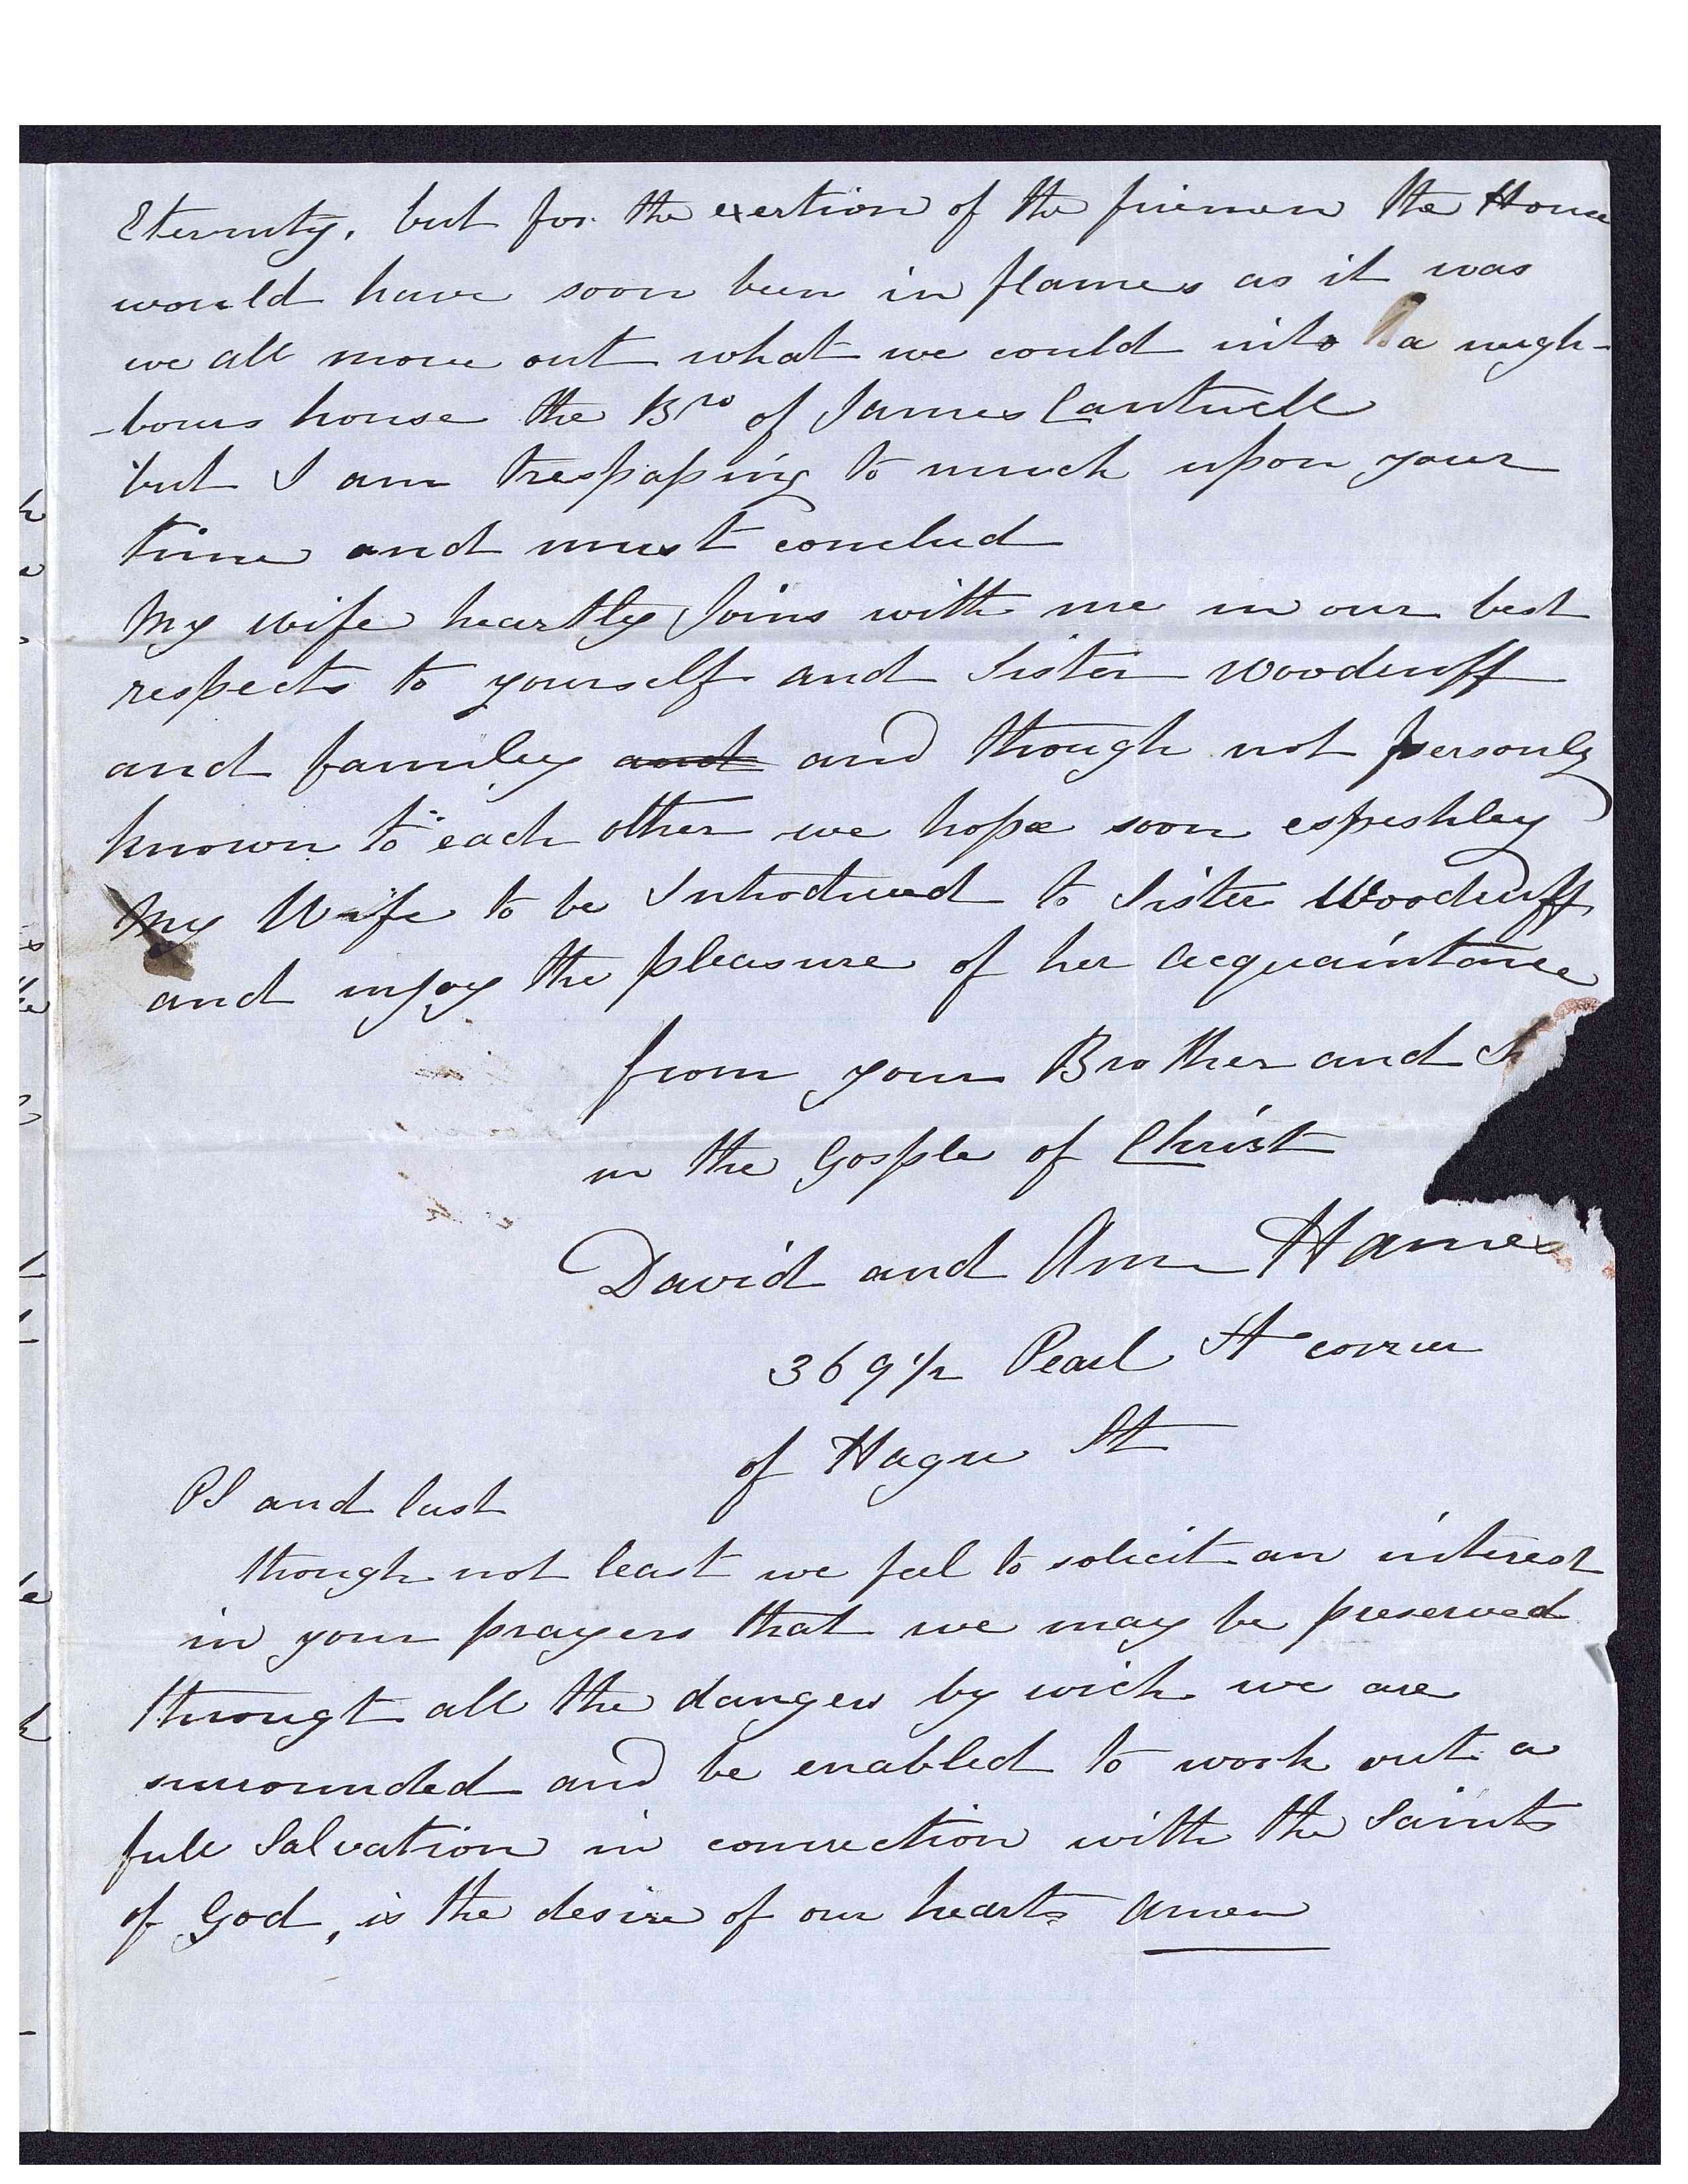 Eternity, but for the exertion of the firemen the House
would have soon been in flames as it was
we all move out what we could into a neigh-
-bours house the Bro of James Cantwell
but I am trespassing to much upon your
time and must conclud
My wife heartly Joins with me in our best
respects to yourself and Sister Woodruff
and familey and and though not personly
known to each other we hope soon espeshley
My Wife to be Introdused to Sister Woodruff
and injoy the pleasure of her acquaintance
from your Brother and
in the Gosple of Christ
David and Ann Hames
369 1/2 Pearl St corner
of Hague St
PS and last
though not least we feel to solicit an interest
in your prayers that we may be preserved
througt all the dangers by wich we are
surrounded and be enabled to work out a
full Salvation in connection with the Saints
of God, is the desire of our hearts Amen